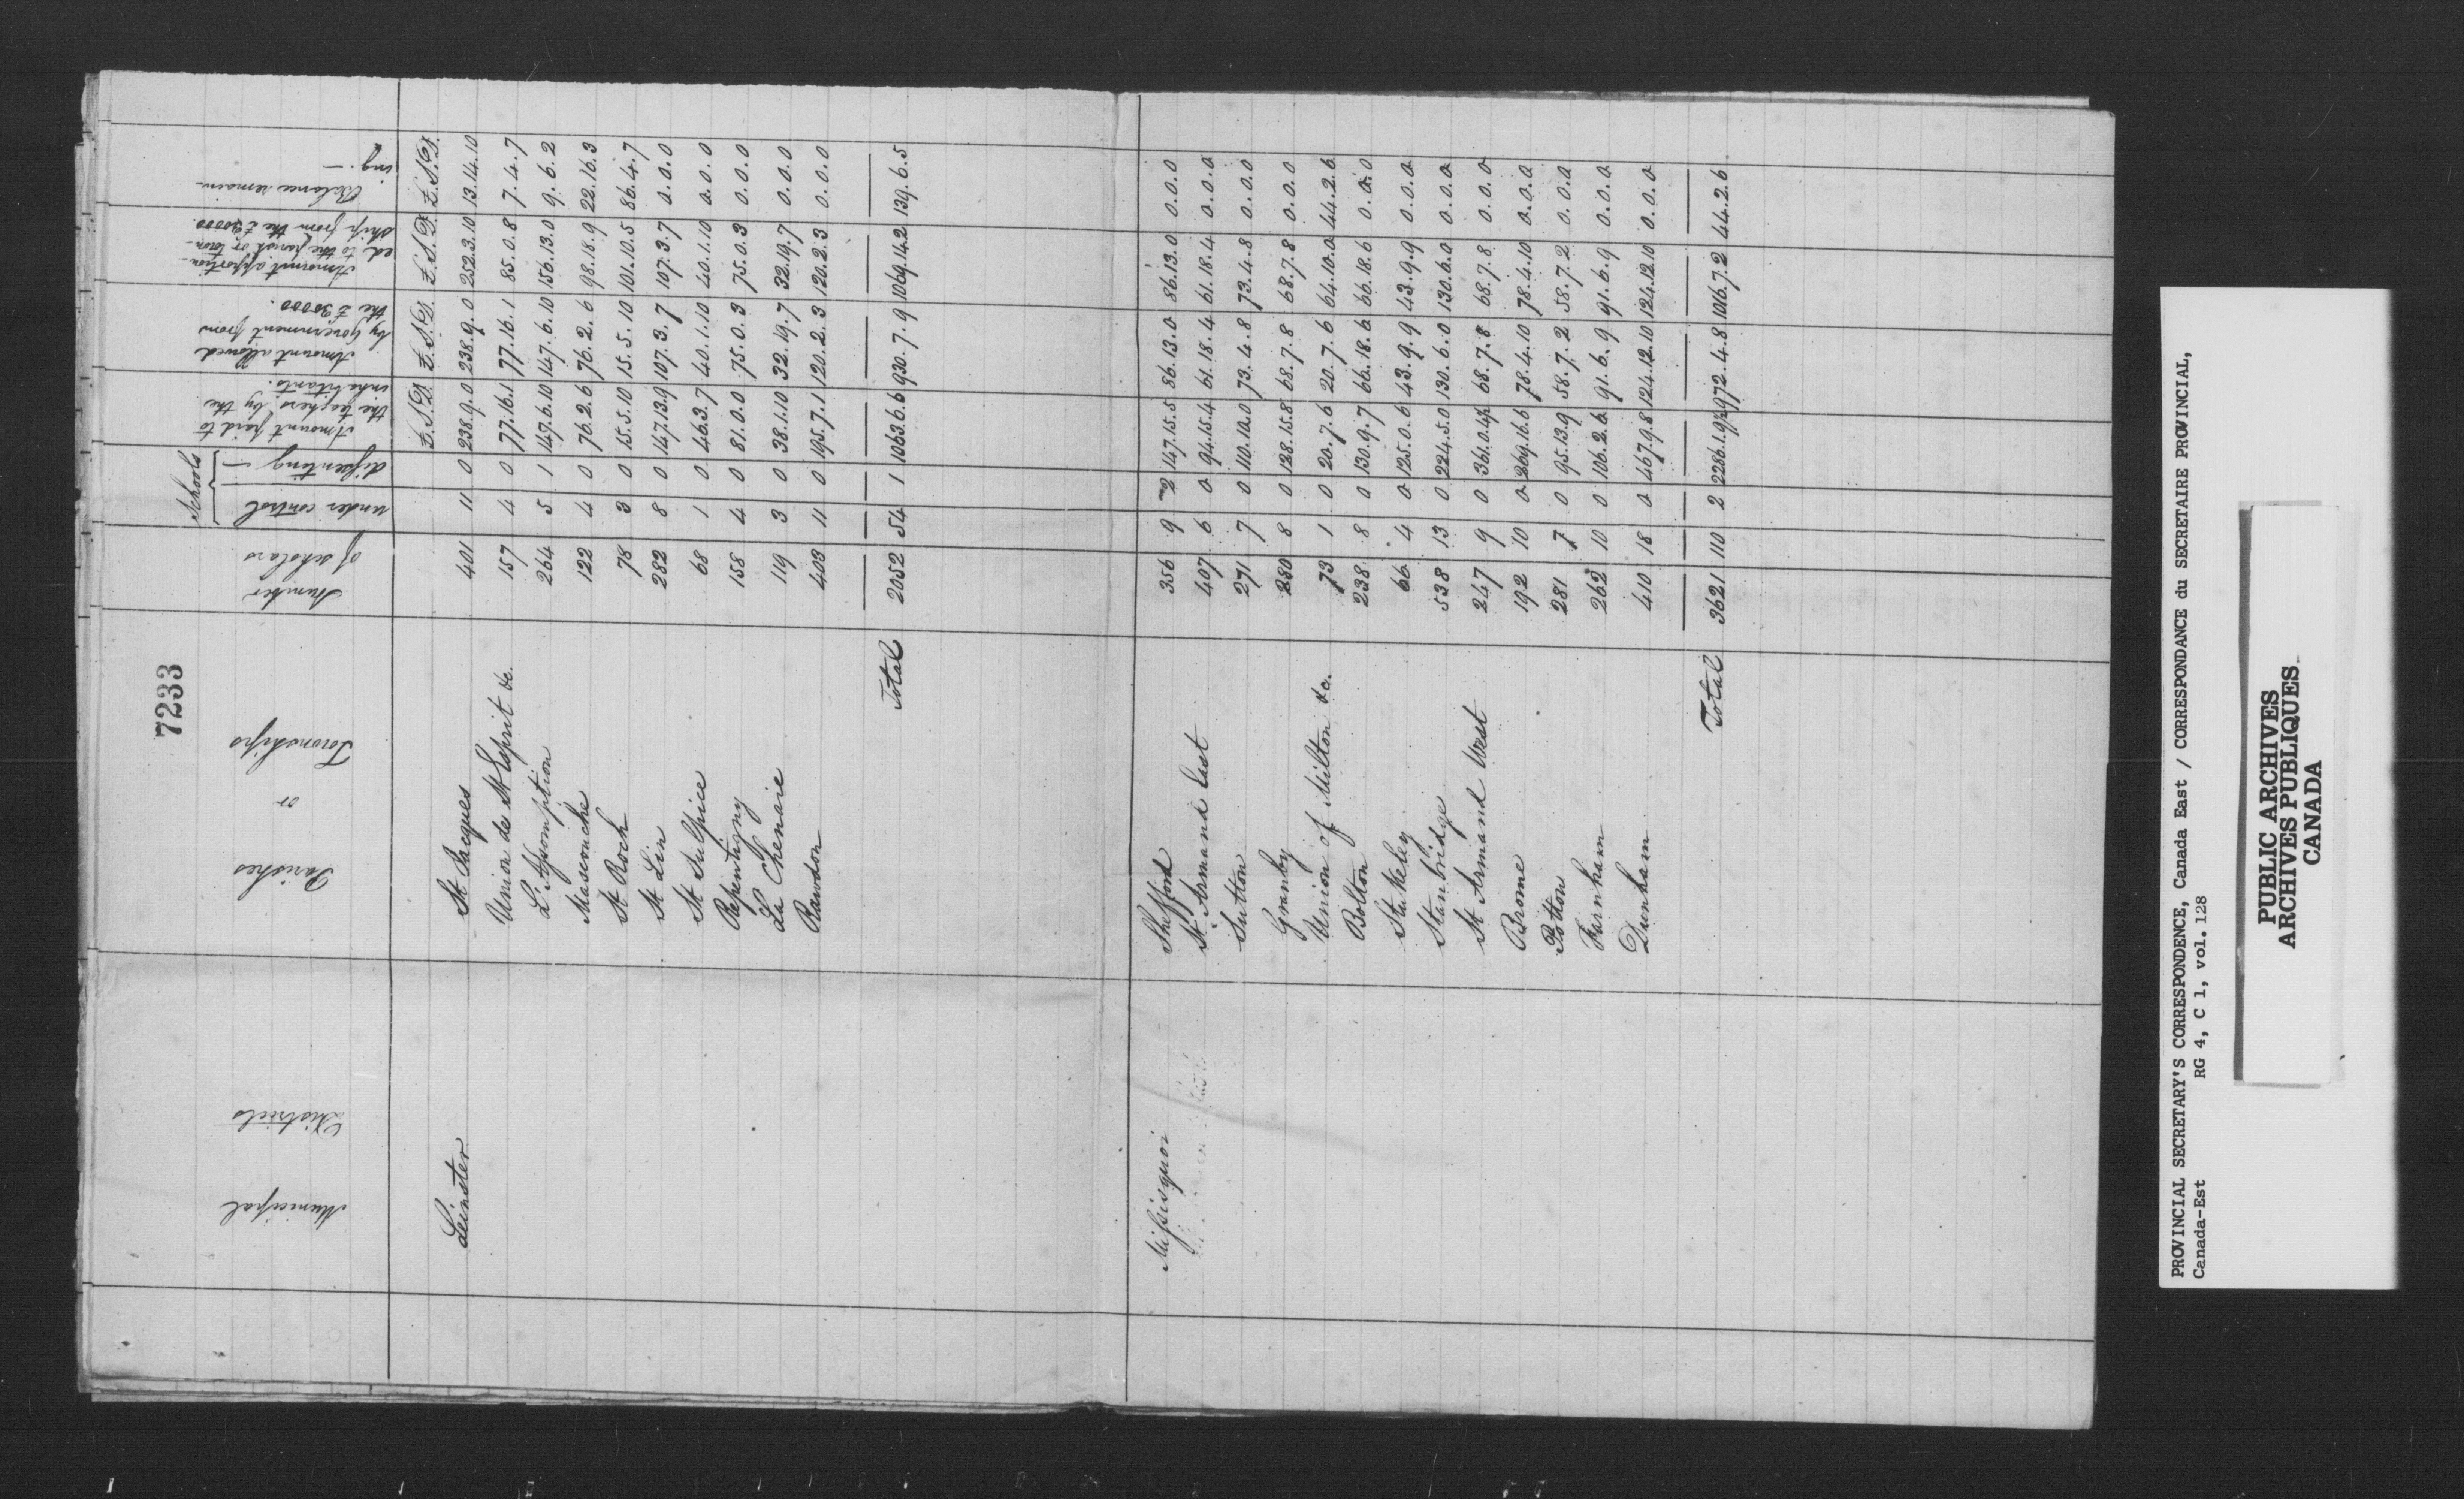 7233
Municipal Districts
Parishes or Townships
Number of scholars
Schools
under control
dissenting —
Amount paid to the teachers by the inhabitants.
Amount allowed by Government from the £30000.
Amount apportioned to the parish or township from the £30000.
Balance remaining. —
£. S. D. £. S. D. £. S. D. £. S. D.
Leinster St Jacques 401 11 0 238.9.0 238.9.0 252.3.10 13.14.10
Union de St Esprit &c. 157 4 0 77.16.1 77.16.1 85.0.8 7.4.7
L'Assomption 264 5 1 147.6.10 147.6.10 156.13.0 9.6.2
Mascouche 122 4 0 76.2.6 76.2.6 98.18.9 22.16.3
St Roch 78 3 0 15.5.10 15.5.10 101.10.5 86.4.7
St Lin 282 8 0 147.13.9 107.3.7 107.3.7 0.0.0
St Sulpice 68 1 0 46.3.7 40.1.10 40.1.10 0.0.0
Repentigny 158 4 0 81.0.0 75.0.3 75.0.3 0.0.0
La Chenaie 119 3 0 38.1.10 32.19.7 32.19.7 0.0.0
Rawdon 403 11 0 195.7.1 120.2.3 120.2.3 0.0.0
Total 2052 54 1 1063.6.6 930.7.9 1069.14.2 139.6.5
Missisquoi Shefford 356 9 2 147.15.5 86.13.0 86.13.0 0.0.0
St Armand East 407 6 0 94.15.4 61.18.4 61.18.4 0.0.0
Sutton 271 7 0 110.10.0 73.4.8 73.4.8 0.0.0
Granby 280 8 0 128.15.8 68.7.8 68.7.8 0.0.0
Union of Milton &c. 73 1 0 20.7.6 20.7.6 64.10.0 44.2.6
Bolton 238 8 0 130.9.7 66.18.6 66.18.6 0.0.0
Stukeley 66 4 0 125.0.6 43.9.9 43.9.9 0.0.0
Stanbridge 538 13 0 224.5.0 130.6.0 130.6.0 0.0.0
St Armand West 247 9 0 361.0.4½ 68.7.8 68.7.8 0.0.0
Brome 192 10 0 269.16.6 78.4.10 78.4.10 0.0.0
Potton 281 7 0 95.13.9 58.7.2 58.7.2 0.0.0
Farnham 262 10 0 106.2.6 91.6.9 91.6.9 0.0.0
Dunham 410 18 0 467.9.8 124.12.10 124.12.10 0.0.0
Total 3621 110 2 2286.1.9½ 972.4.8 1016.7.2 44.2.6
PROVINCIAL SECRETARY'S CORRESPONDENCE, Canada East / CORRESPONDANCE du SECRETAIRE PROVINCIAL,
Canada-Est RG 4, C 1, vol. 128
PUBLIC ARCHIVES
ARCHIVES PUBLIQUES
CANADA